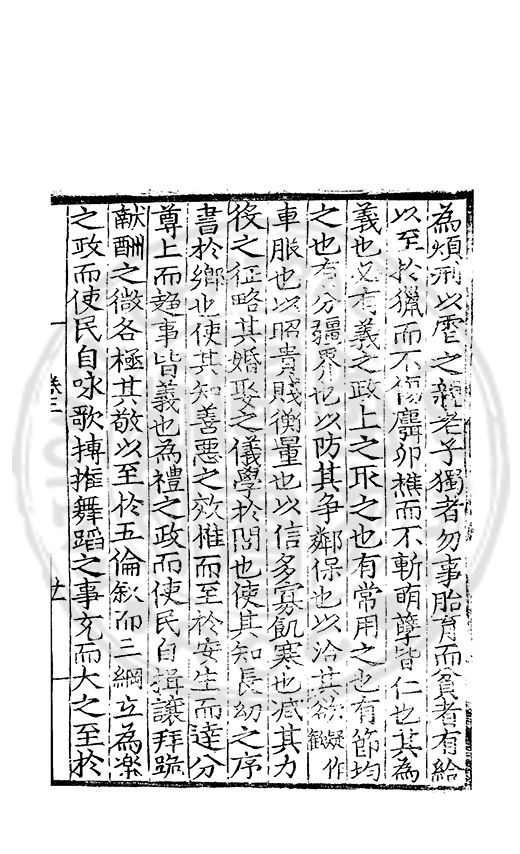 為煩刑以虐之親老子獨者勿事胎育而貧者有給
以至於獵而不傷麛卵樵而不斬萌孽皆仁也其為
義也必有義之政上之取之也有常用之也有節均
之也有分疆界也以防其争鄰保也以洽其欲擬作歡
車服也以昭貴賤衡量也以信多寡飢寒也减其力
役之征略其婚娶之儀學於閭也使其知長幼之序
書於鄉也使其知善惡之效推而至於安生而達分
尊上而趨事皆義也為禮之政而使民自揖讓拜跪
献酬之微各極其敬以至於五倫叙而三綱立為樂
之政而使民自咏歌摶拊舞蹈之事充而大之至於
卷三
廿一